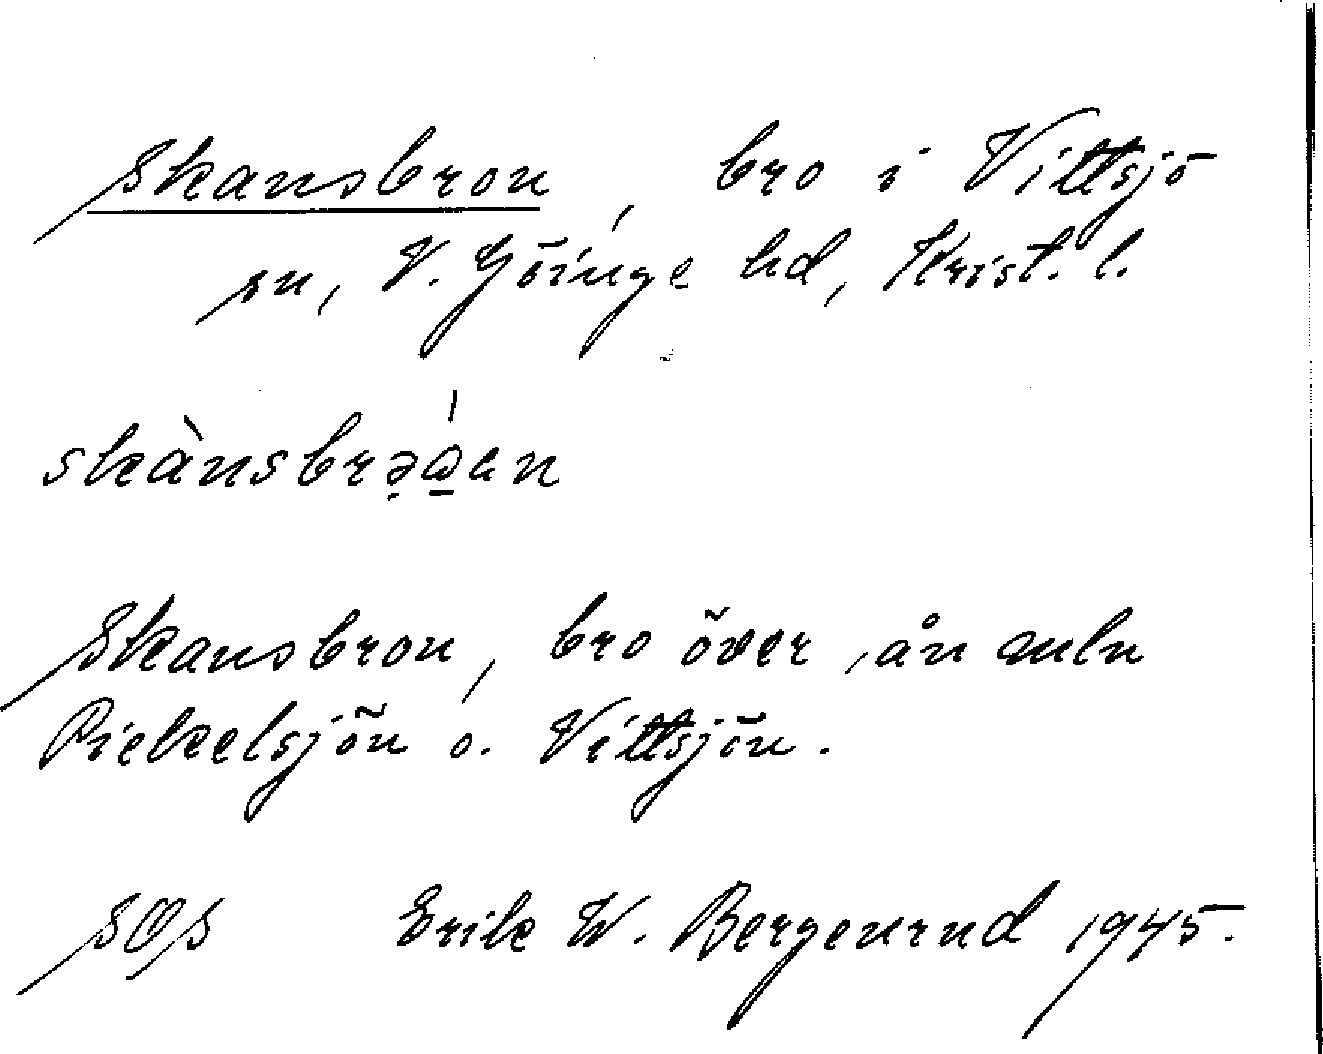 Skansbron, bro i Vittsjö
sn, V. Göinge hd, Krist. l.
skànsbrə̣ώ̲en
Skansbron, bro över ån mln
Pickelsjön o. Vittsjön.
SOS Erik W. Bergenrud 1945.